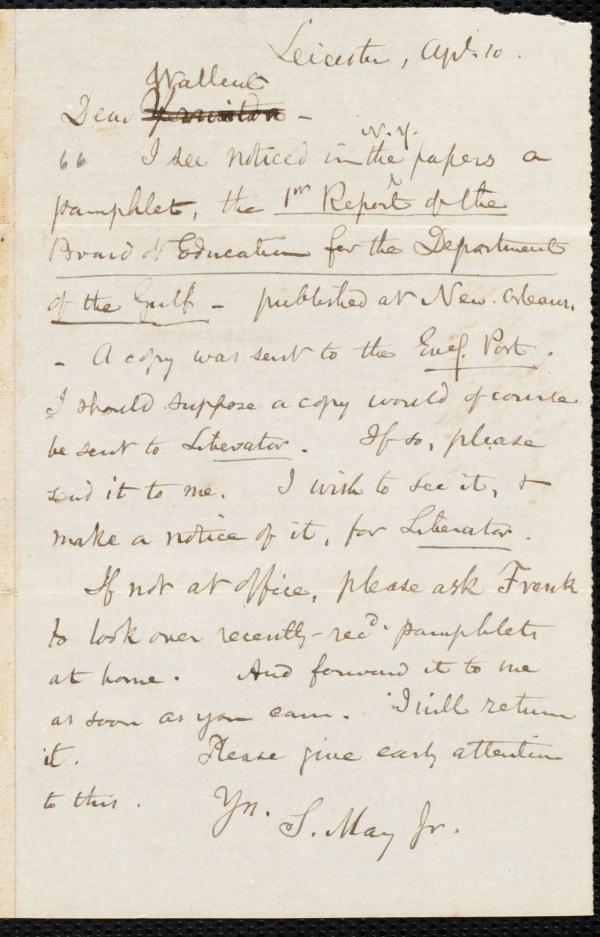 Leicester, Apl. 10.
Wallcut
Dear Yerrinton –
N.Y.
66 I see noticed in the papers a
pamphlet, the 1st Report of the
Board of Education for the Department
of the Gulf – published at New. Orleans.
– A copy was sent to the Eveg. Post.
I should suppose a copy would of course
be sent to Liberator. If so, please
send it to me. I wish to see it, &
make a notice of it, for Liberator.
If not at office, please ask Frank
to look over recently-recd. pamphlets
at home. And forward it to me
as soon as you can. I will return
it. Please give early attention
to this. Yrs.
S. May Jr.